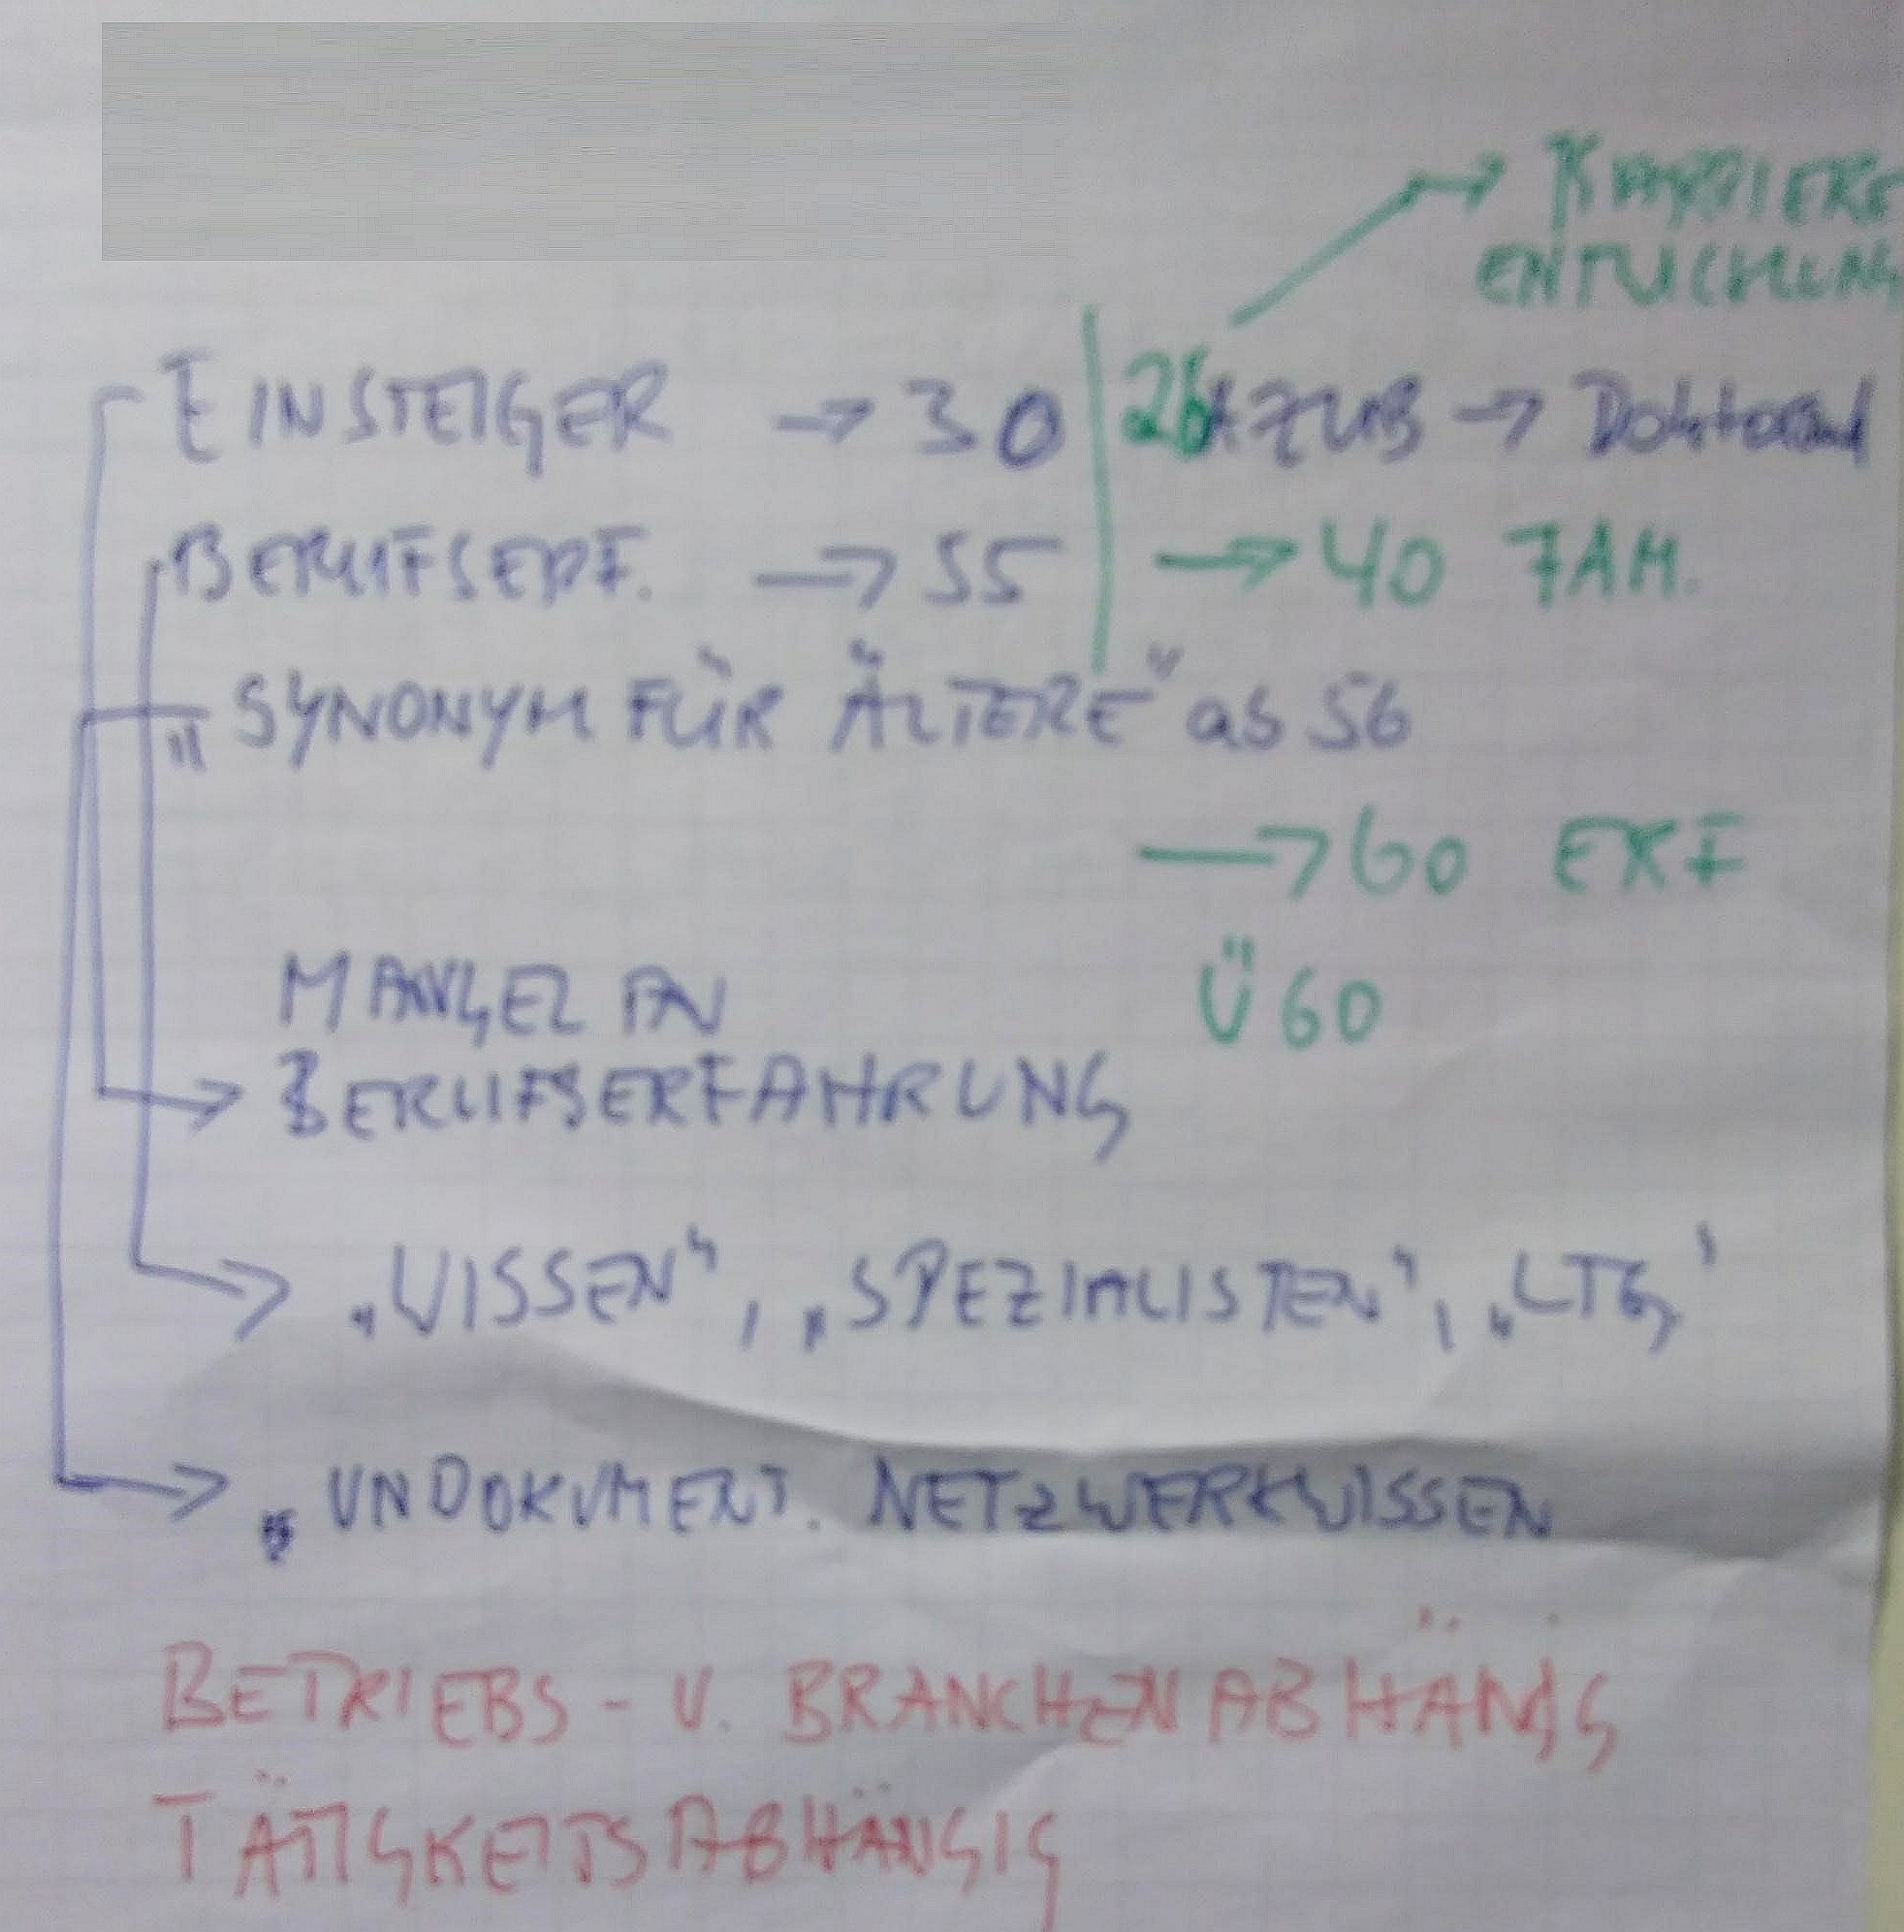 → KARRIERE
ENTWICKLUNG
EINSTEIGER → 30 | 26 AZUB → Doktorand
BERUFSERF. → 55 | → 40 FAM.
"SYNONYM FÜR "ÄLTERE" ab 56
→ 60 ERF
Ü60
MANGEL AN
→ BERUFSERFAHRUNG
→ „WISSEN", „SPEZIALISTEN", „LTG'
→ „UNDOKUMENT. NETZWERKWISSEN
BETRIEBS- U. BRANCHENABHÄNG
TÄTIGKEITSABHÄNGIG